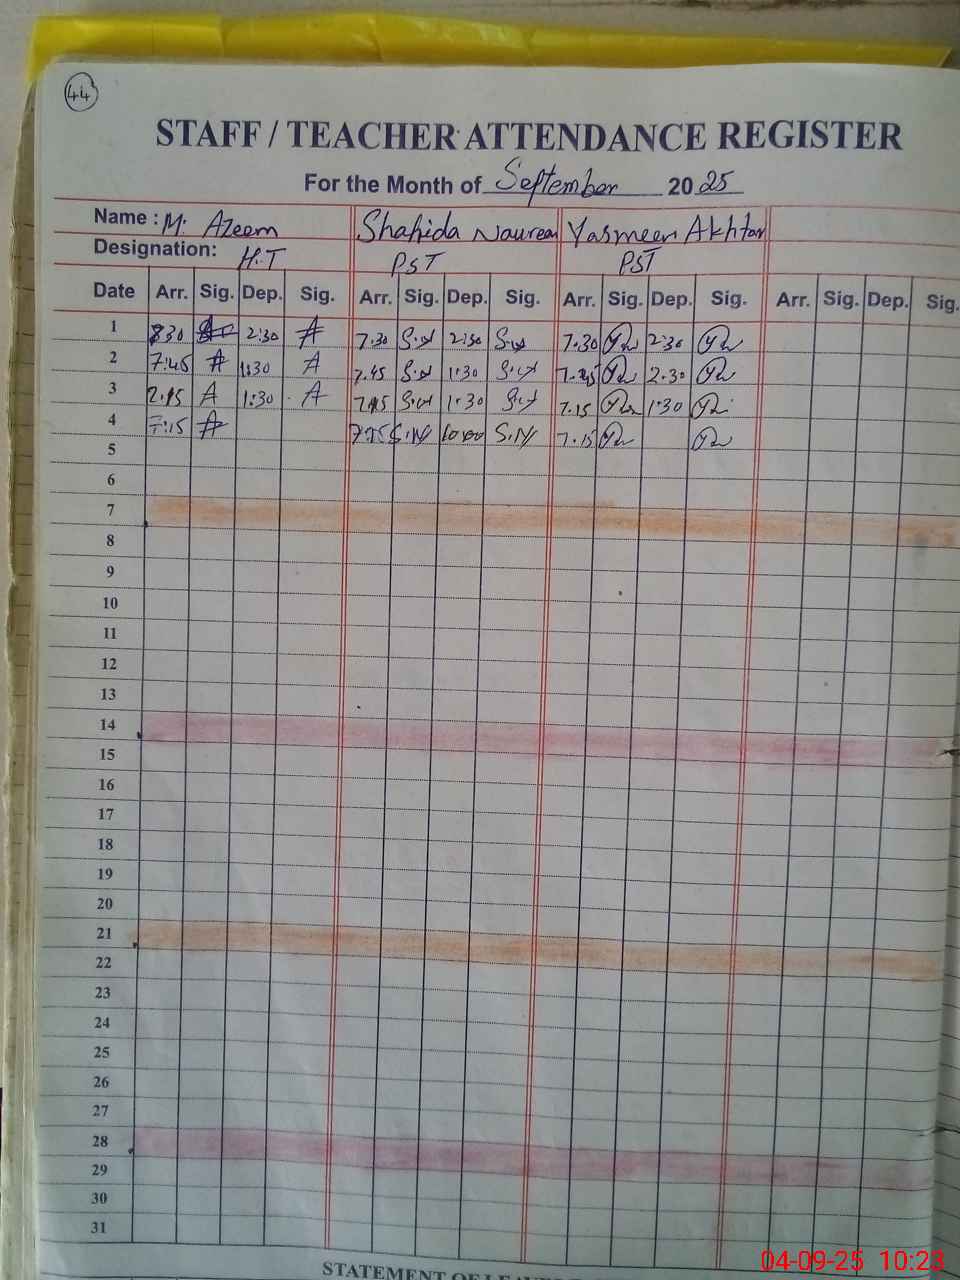 44
STAFF / TEACHER ATTENDANCE REGISTER
For the Month of September 2025
Name : M. Azeem Shahida Naureen Yasmeen Akhtar
Designation: H.T PST PST
Date Arr. Sig. Dep. Sig. Arr. Sig. Dep. Sig. Arr. Sig. Dep. Sig. Arr. Sig. Dep. Sig.
1 2:30 A 7.30 2:30 7.30 2:30
2 7:45 A 1:30 A 7.45 1:30 7.45 2.30
3 A 1:30 A 1:30 7.15 1:30
4 7:15 A S.N 7.15
5
6
7
8
9
10
11
12
13
14
15
16
17
18
19
20
21
22
23
24
25
26
27
28
29
30
31
STATEMENT OF LEAVE
04-09-25 10:23